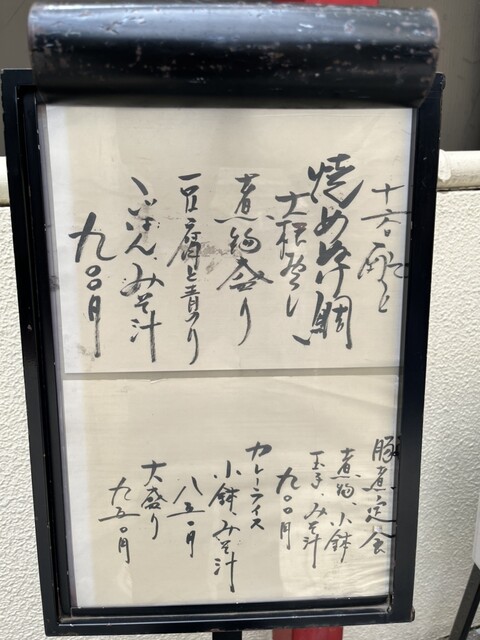 焼めぬけ鯛
大根おろし
煮物盛り
豆腐と青のり
ごはん みそ汁
九〇〇円
豚煮定食
煮物、小鉢
玉子、みそ汁
九〇〇円
カレーライス
小鉢 みそ汁
八五〇円
大盛り
九五〇円